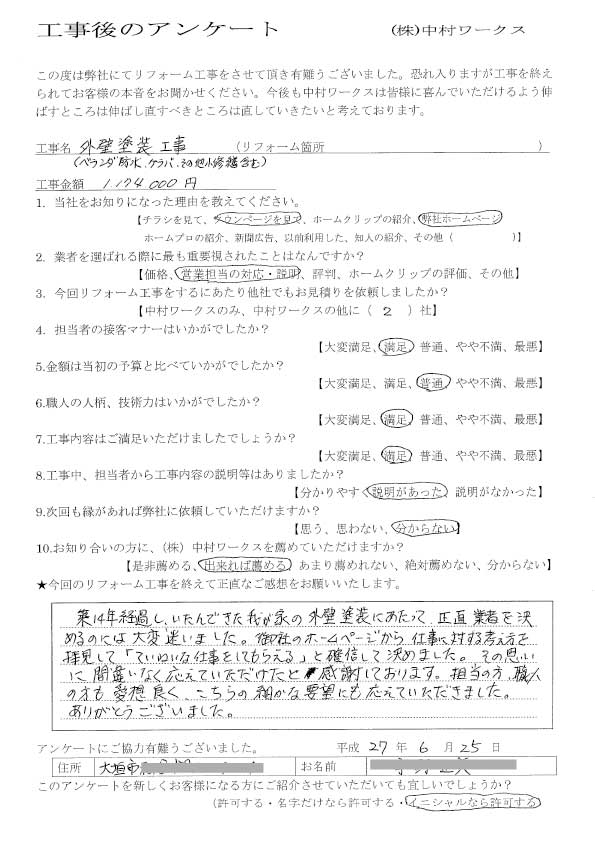 工事後のアンケート　(株)中村ワークス
この度は弊社にてリフォーム工事をさせて頂き有難うございました。恐れ入りますが工事を終え
られてお客様の本音をお聞かせください。今後も中村ワークスは皆様に喜んでいただけるよう伸
ばすところは伸ばし直すべきところは直していきたいと考えております。
工事名　外壁塗装工事　（リフォーム箇所　）
(ベランダ防水、ケラバ、その他小修繕含む)
工事金額　1,174,000円
1. 当社をお知りになった理由を教えてください。
【チラシを見て、タウンページを見て、ホームクリップの紹介、弊社ホームページ
ホームプロの紹介、新聞広告、以前利用した、知人の紹介、その他（　）】
2. 業者を選ばれる際に最も重要視されたことはなんですか？
【価格、営業担当の対応・説明、評判、ホームクリップの評価、その他】
3. 今回リフォーム工事をするにあたり他社でもお見積りを依頼しましたか？
【中村ワークスのみ、中村ワークスの他に（　2　）社】
4. 担当者の接客マナーはいかがでしたか？
【大変満足、満足、普通、やや不満、最悪】
5.金額は当初の予算と比べていかがでしたか？
【大変満足、満足、普通、やや不満、最悪】
6.職人の人柄、技術力はいかがでしたか？
【大変満足、満足、普通、やや不満、最悪】
7.工事内容はご満足いただけましたでしょうか？
【大変満足、満足、普通、やや不満、最悪】
8.工事中、担当者から工事内容の説明等はありましたか？
【分かりやすく説明があった、説明がなかった】
9.次回も縁があれば弊社に依頼していただけますか？
【思う、思わない、分からない】
10.お知り合いの方に、（株）中村ワークスを薦めていただけますか？
【是非薦める、出来れば薦める、あまり薦めれない、絶対薦めない、分からない】
★今回のリフォーム工事を終えて正直なご感想をお願いいたします。
築14年経過し、いたんできた我が家の外壁塗装にあたって、正直業者を決
めるのには大変迷いました。御社のホームページから仕事に対する考え方を
拝見して「ていねいな仕事をしてもらえる」と確信して決めました。その思い
に間違いなく応えていただけたと感謝しております。担当の方、職人
の方も愛想良く、こちらの細かな要望にも応えていただきました。
ありがとうございました。
アンケートにご協力有難うございました。　平成 27 年 6 月 25 日
住所　大垣市　お名前
このアンケートを新しくお客様になる方にご紹介させていただいても宜しいでしょうか？
（許可する・名字だけなら許可する・イニシャルなら許可する）